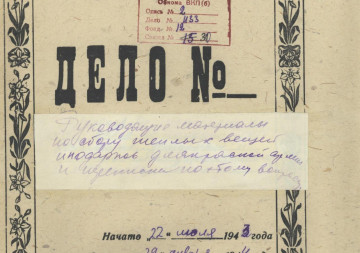 Обком ВКП(б)
Опись № 2
Дело № 453
Фонд № 18
ДЕЛО №
Руководящие материалы
по сбору теплых вещей
и подарков для красной армии
и переписка по этому вопросу
Начато 22 июля 1943 года